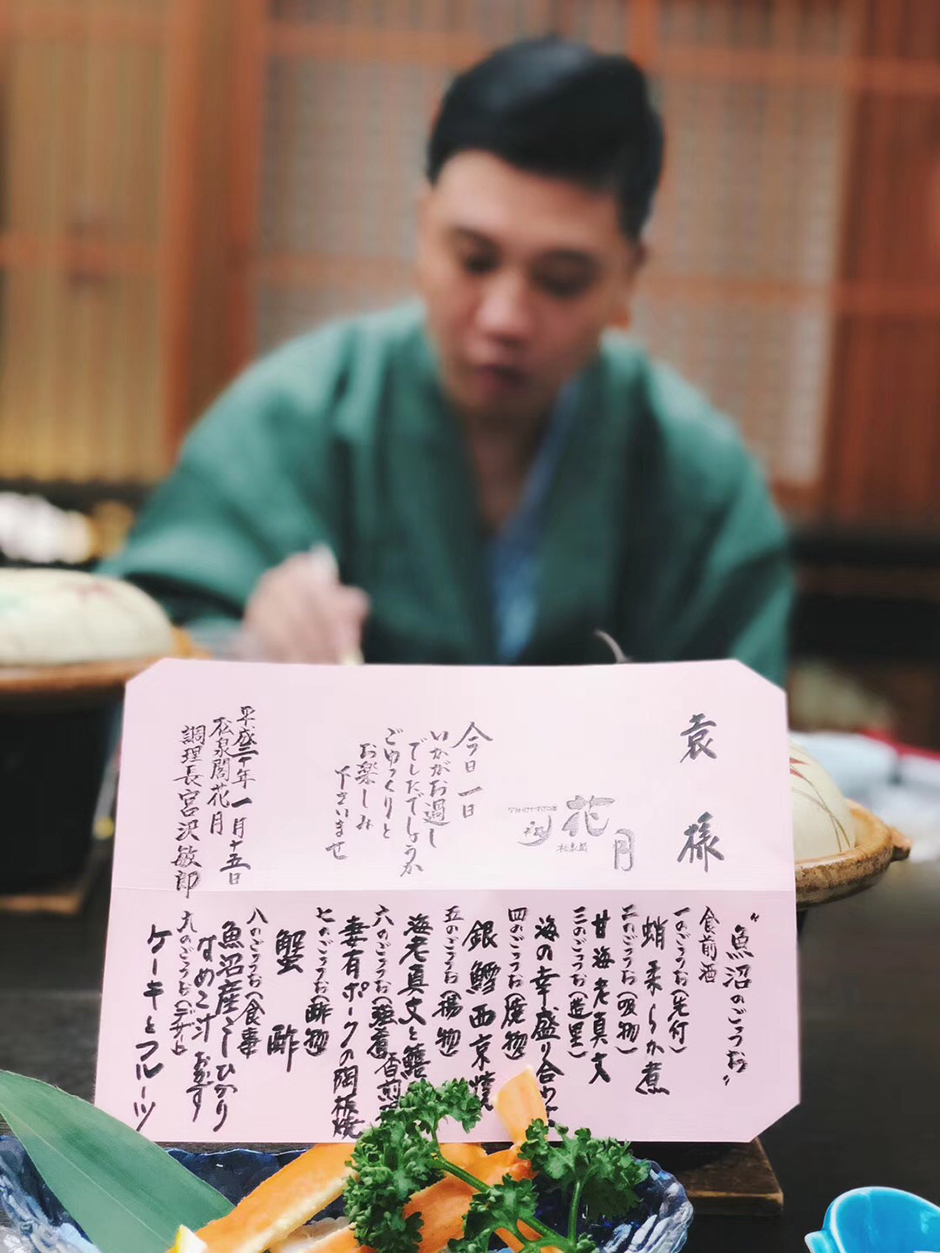 袁様
花月
松泉閣
今日一日
いかがお過し
でしたでしょうか
ごゆっくりと
お楽しみ
下さいませ
平成三十年一月十五日
松泉閣花月
調理長宮沢敏郎
"魚沼のごっつお"
食前酒
一のごっつお(先付)
蛸柔らか煮
二のごっつお(吸物)
甘海老真丈
三のごっつお(造里)
海の幸盛り合わせ
四のごっつお(焼物)
銀鱈西京焼
五のごっつお(揚物)
海老真丈と鱚
香煎
六のごっつお(強肴)
妻有ポークの陶板焼
七のごっつお(酢物)
蟹酢
八のごっつお(食事)
魚沼産こしひかり
なめこ汁 お食す
九のごっつお(デザート)
ケーキとフルーツ